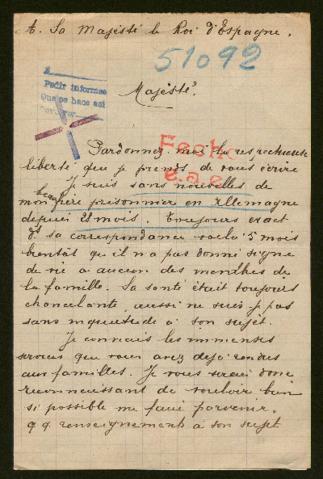 A. Sa Majesté le Roi d'Espagne.
51092
Pedir informes
Que se hace así
Majesté,
Fecho
Pardonnez moi la respectueuse
liberté que je prends de vous écrire
Je suis sans nouvelles de
mon père prisonnier en Allemagne
depuis mois. Toujours exact
ds sa correspondance voilà 5 mois
bientôt qu'il n'a pas donné signe
de vie a aucun des membres de
la famille. Sa santé était toujours
chancelante aussi ne suis-je pas
sans inquiétude à son sujet.
Je connais les immenses
services que vous avez déjà rendus
aux familles. Je vous serai donc
reconnaissant de vouloir bien
si possible me faire parvenir
qq renseignements à son sujet